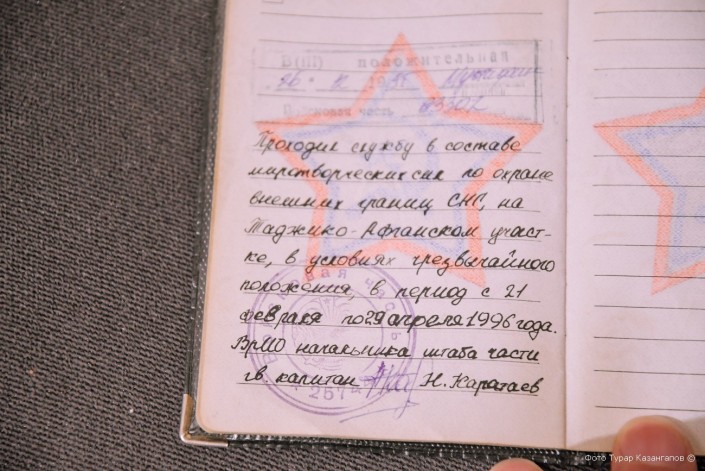 Проходил службу в составе
миротворческих сил по охране
внешних границ СНГ, на
Таджико-Афганском участ-
ке, в условиях чрезвычайного
положения, в период с 21
февраля по 29 апреля 1996 года.
ВрИО начальника штаба части
гв. капитан Н. Каратаев
Фото Турар Казангапов ©